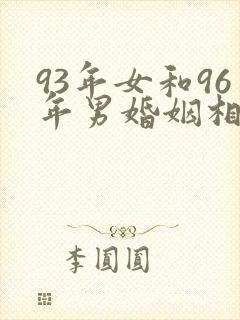 93年女和96
年男婚姻相
李圓圓